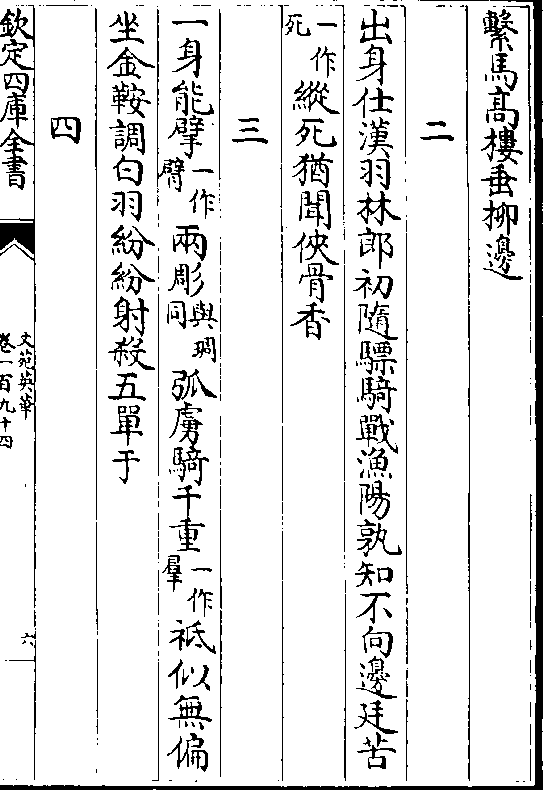 繫馬高樓垂柳邊
二
出身仕漢羽林郎初隨驃騎戰漁陽孰知不向邊廷苦
一作死縱死猶聞俠骨香
三
一身能擘一作臂兩彫與琱同弧虜騎千重一作羣祗似無偏
坐金鞍調白羽紛紛射殺五單于
四
欽定四庫全書
文苑英華
卷一百九十四
六